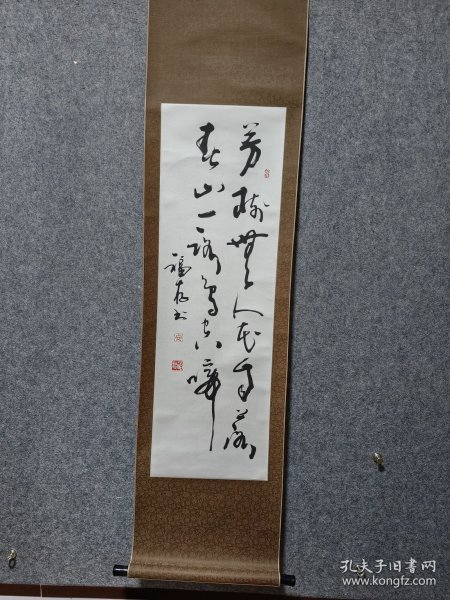 芳树无人花自落
春山一路鸟空啼
福存书
孔夫子旧书网
www.kongfz.com